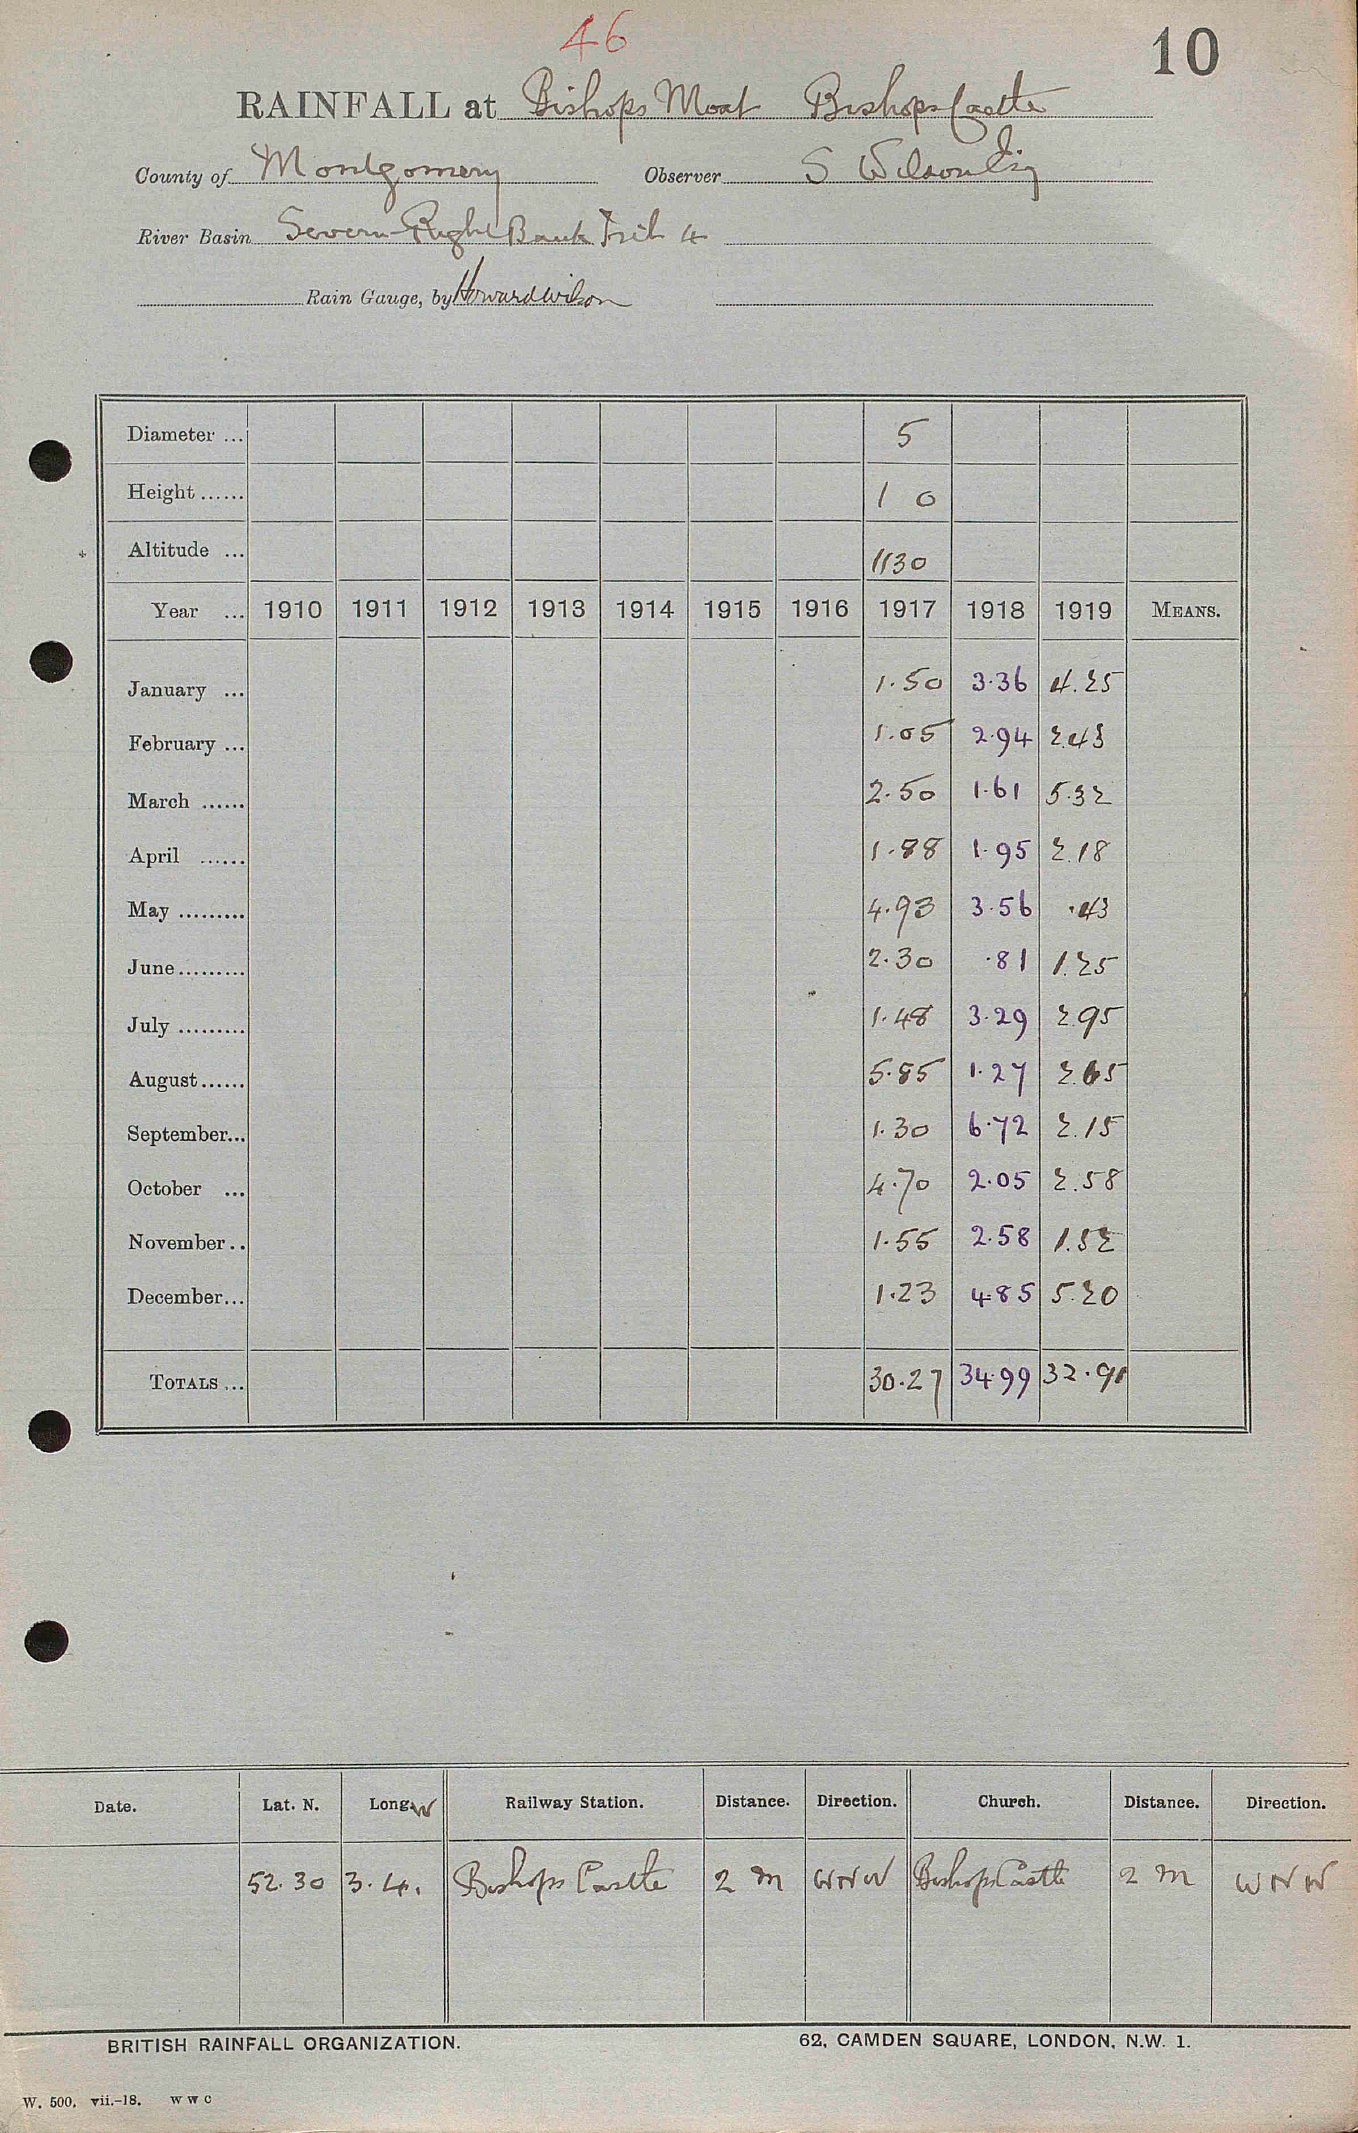 46
10
RAINFALL at Bishops Moat Bishops Castle
County of Montgomery Observer S Wilson Esq
River Basin Severn-Right Bank Trib 4
Rain Gauge, by Howard Wilson
Diameter ... 5
Height ...... 1 0
Altitude ... 1130
Year ... 1910 1911 1912 1913 1914 1915 1916 1917 1918 1919 MEANS.
January ... 1.50 3.36 4.25
February ... 1.05 2.94 2.43
March ...... 2.50 1.61 5.32
April ...... 1.88 1.95 2.18
May ......... 4.93 3.56 .43
June ......... 2.30 .81 1.25
July ......... 1.48 3.29 2.95
August ...... 5.85 1.27 2.65
September... 1.30 6.72 2.15
October ... 4.70 2.05 2.58
November .. 1.55 2.58 1.52
December... 1.23 4.85 5.20
TOTALS ... 30.27 34.99 32.91
Date. Lat. N. Long. W Railway Station. Distance. Direction. Church. Distance. Direction.
52.30 3.4. Bishops Castle 2 m WNW Bishops Castle 2 m WNW
BRITISH RAINFALL ORGANIZATION. 62, CAMDEN SQUARE, LONDON, N.W. 1.
W. 500. vii.-18. W W C